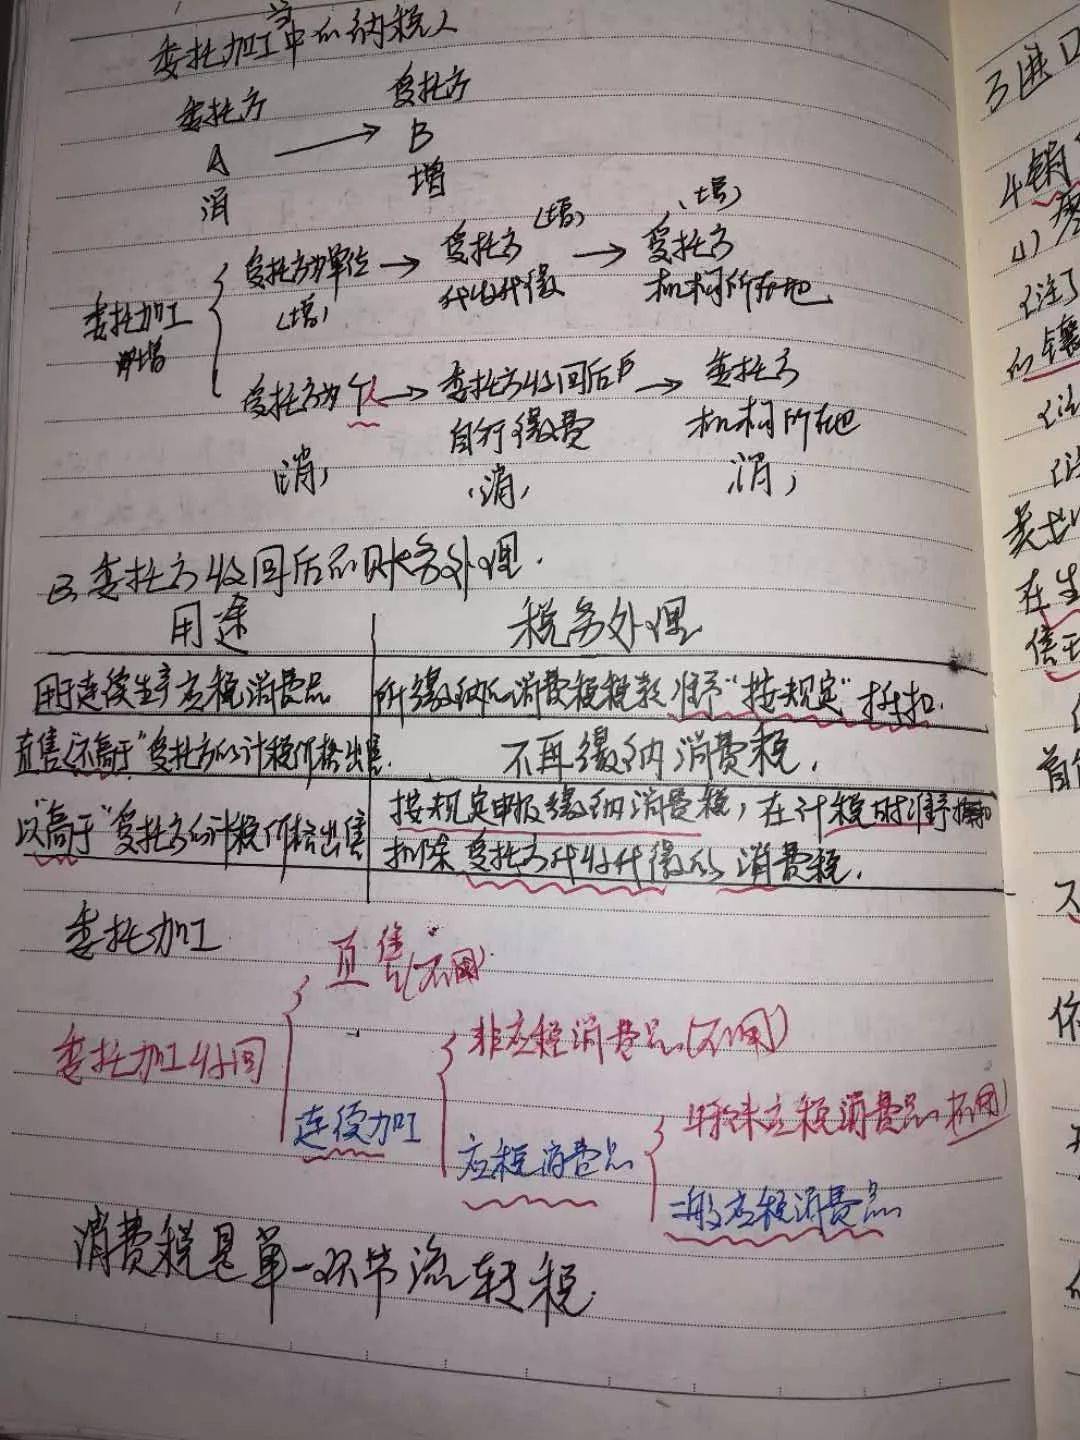 委托加工中的纳税人
委托方 受托方
A → B
消 增
受托方为单位 → 受托方(增) → 受托方(增)
(增) 代收代缴 机构所在地
委托加工
受托方为个人 → 委托方收回后 → 委托方
自行缴费 机构所在地
(消) (消) (消)
B.委托方收回后的账务处理.
用途 税务处理
用于连续生产应税消费品 所缴纳的消费税税款准予"按规定"抵扣.
直售(不高于"受托方的计税价格出售. 不再缴纳消费税.
以"高于"受托方的计税价格出售 按规定申报缴纳消费税,在计税时准予
扣除受托方代收代缴的消费税.
委托加工
直售(不用)
委托加工收回 非应税消费品(不用)
连续加工 特殊应税消费品(不用)
应税消费品
一般应税消费品
消费税是单一环节流转税.
3进口
4销
(1)
(注
的镶
(注
(注
类
在生